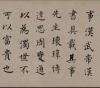 事漢武帝漢
書具載其事
先生瓌瑋博
達思周變通
以為濁世不
可以富貴也